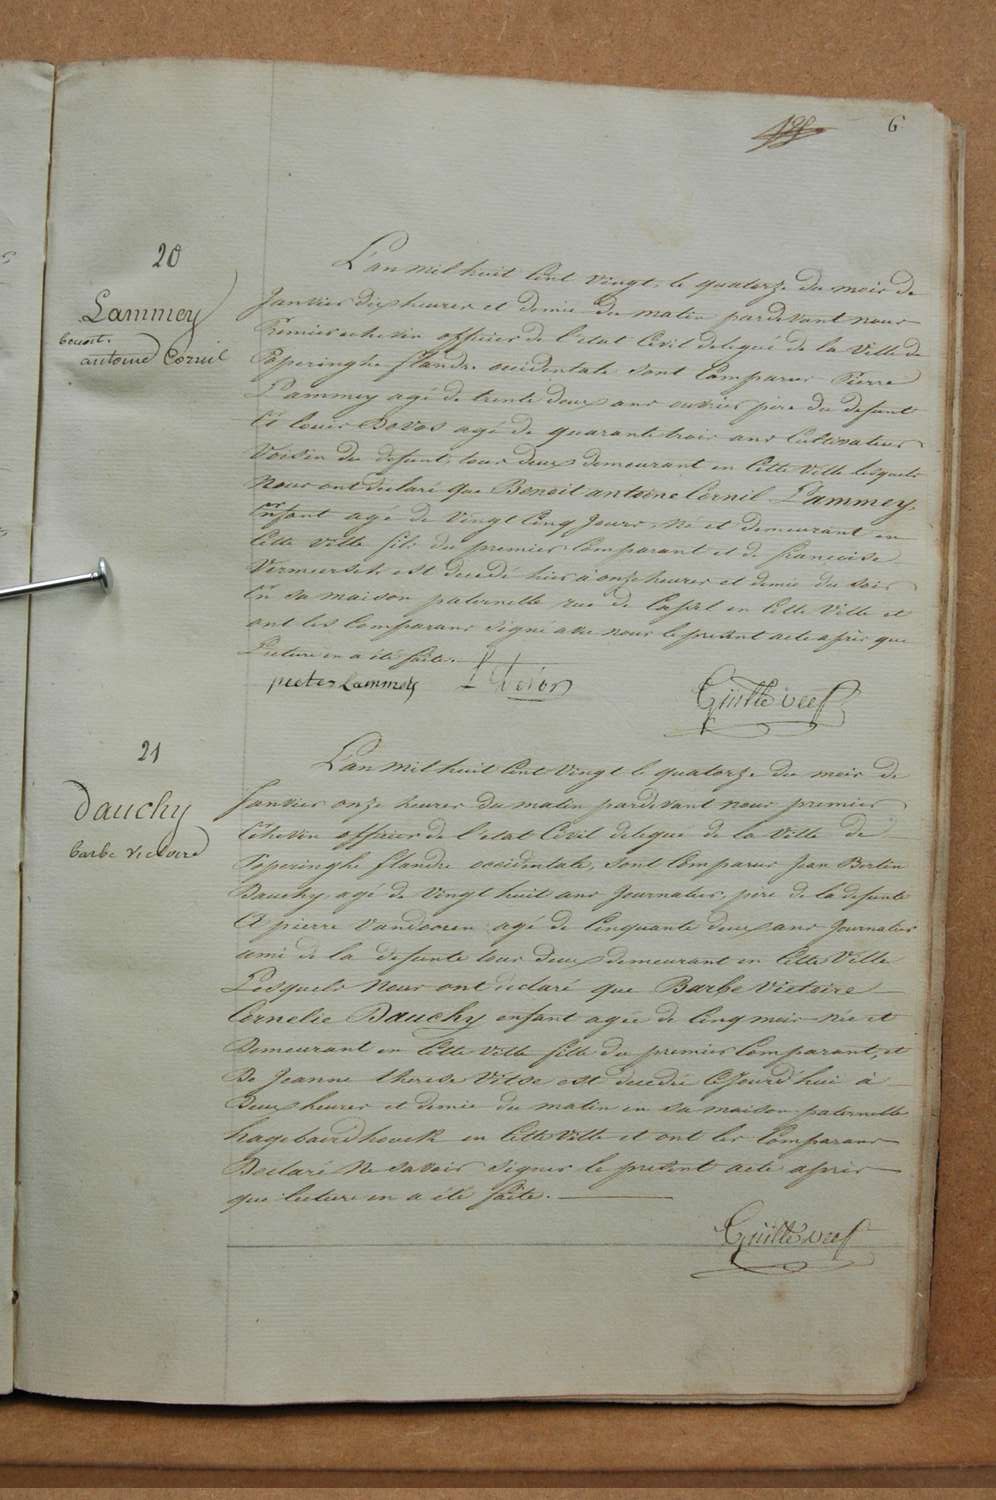 6
20
Lammey
benoit
antoine Cornil
L'an mil huit Cent Vingt, le quatorze du mois de
Janvier dix heures et demie du matin pardevant nous
Premier echevin officier de l'etat Civil delegué de la Ville de
Poperinghe flandre occidentale sont Comparus Pierre
Lammey agé de trente deux ans ouvrier père du defunt
Et louis Devos agé de quarante trois ans Cultivateur
Voisin du defunt, tous deux demeurant en Cette Ville lesquels
Nous ont declaré que Benoit antoine Cornil Lammey
Enfant agé de Vingt Cinq Jours, Né et demeurant en
Cette Ville fils du premier Comparant et de francoise
Vermeersch est decedé hier à onze heures et demie du soir
En sa maison paternelle rue de Cassel en Cette Ville et
ont les Comparans signé avec nous le present acte après que
Lecture en a été faite.
peeter Lammey
21
Dauchy
barbe victoire
L'an mil huit Cent Vingt le quatorze du mois de
Janvier onze heures du matin pardevant nous premier
Echevin officier de l'etat Civil delegué de la Ville de
Poperinghe flandre occidentale, sont Comparus Jean Bertin
Dauchy, agé de Vingt huit ans Journalier, père de la defunte
Et pierre Vandooren agé de Cinquante deux ans Journalier
ami de la defunte tous deux demeurant en Cette Ville
Lesquels Nous ont declaré que Barbe Victoire
Cornelie Dauchy enfant agée de Cinq mois Née et
Demeurant en Cette Ville fille du premier Comparant, et
De Jeanne therese Vitse est decedée Cejourd'hui à
Deux heures et demie du matin en sa maison paternelle
en Cette Ville et ont les Comparans
Declaré Ne savoir signer le present acte après
que lecture en a été faite.